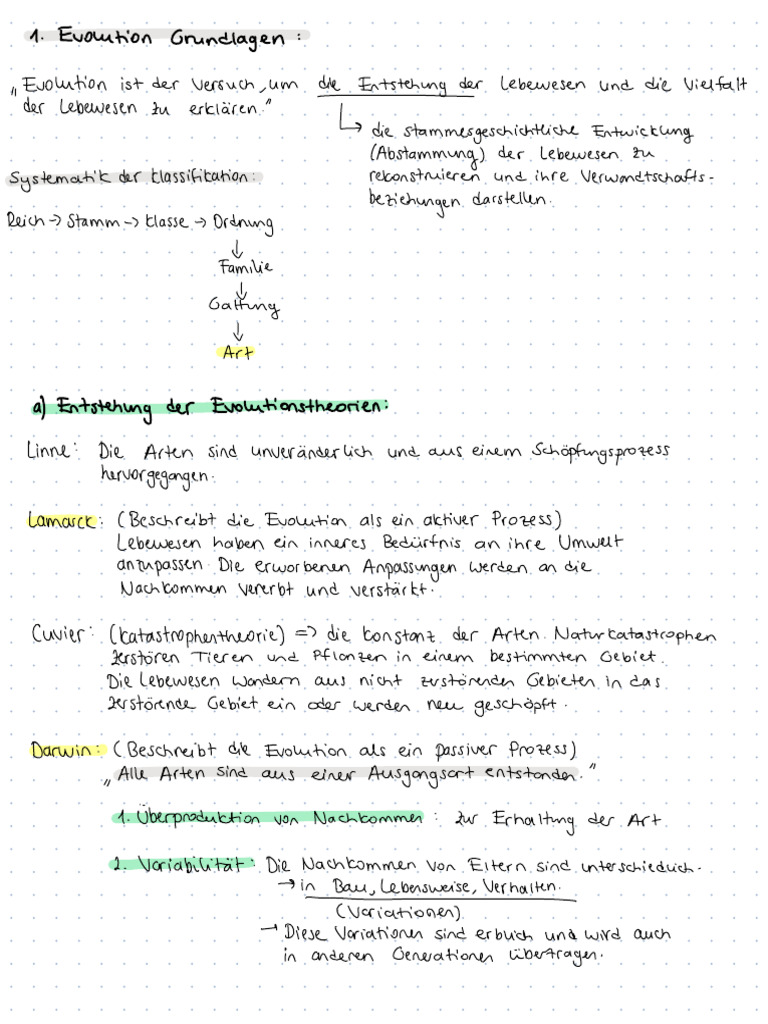 1. Evolution Grundlagen:
„Evolution ist der Versuch, um die Entstehung der Lebewesen und die Vielfalt
der Lebewesen zu erklären."
↳ die stammesgeschichtliche Entwicklung
(Abstammung) der Lebewesen zu
rekonstruieren und ihre Verwandtschafts-
beziehungen darstellen.
Systematik der Klassifikation:
Reich → Stamm → Klasse → Ordnung
↓
Familie
↓
Gattung
↓
Art
a) Entstehung der Evolutionstheorien:
Linne: Die Arten sind unveränderlich und aus einem Schöpfungsprozess
hervorgegangen.
Lamarck: (Beschreibt die Evolution als ein aktiver Prozess)
Lebewesen haben ein inneres Bedürfnis an ihre Umwelt
anzupassen. Die erworbenen Anpassungen werden an die
Nachkommen vererbt und verstärkt.
Cuvier: (Katastrophentheorie) => die Konstanz der Arten. Naturkatastrophen
zerstören Tieren und Pflanzen in einem bestimmten Gebiet.
Die Lebewesen wandern aus nicht zustörenden Gebieten in das
zerstörende Gebiet ein oder werden neu geschöpft.
Darwin: (Beschreibt die Evolution als ein passiver Prozess)
„Alle Arten sind aus einer Ausgangsart entstanden."
1. Überproduktion von Nachkommen: zur Erhaltung der Art.
2. Variabilität: Die Nachkommen von Eltern sind unterschiedlich.
→ in Bau, Lebensweise, Verhalten.
(Variationen)
→ Diese Variationen sind erblich und wird auch
in anderen Generationen übertragen.